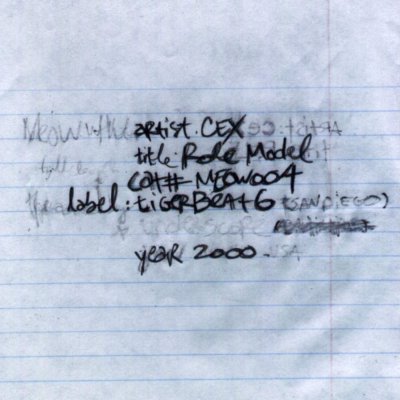 artist: CEX
title: Role Model
cat# MEOW004
label: TiGERBEAT6 (SAN DIEGO)
year 2000